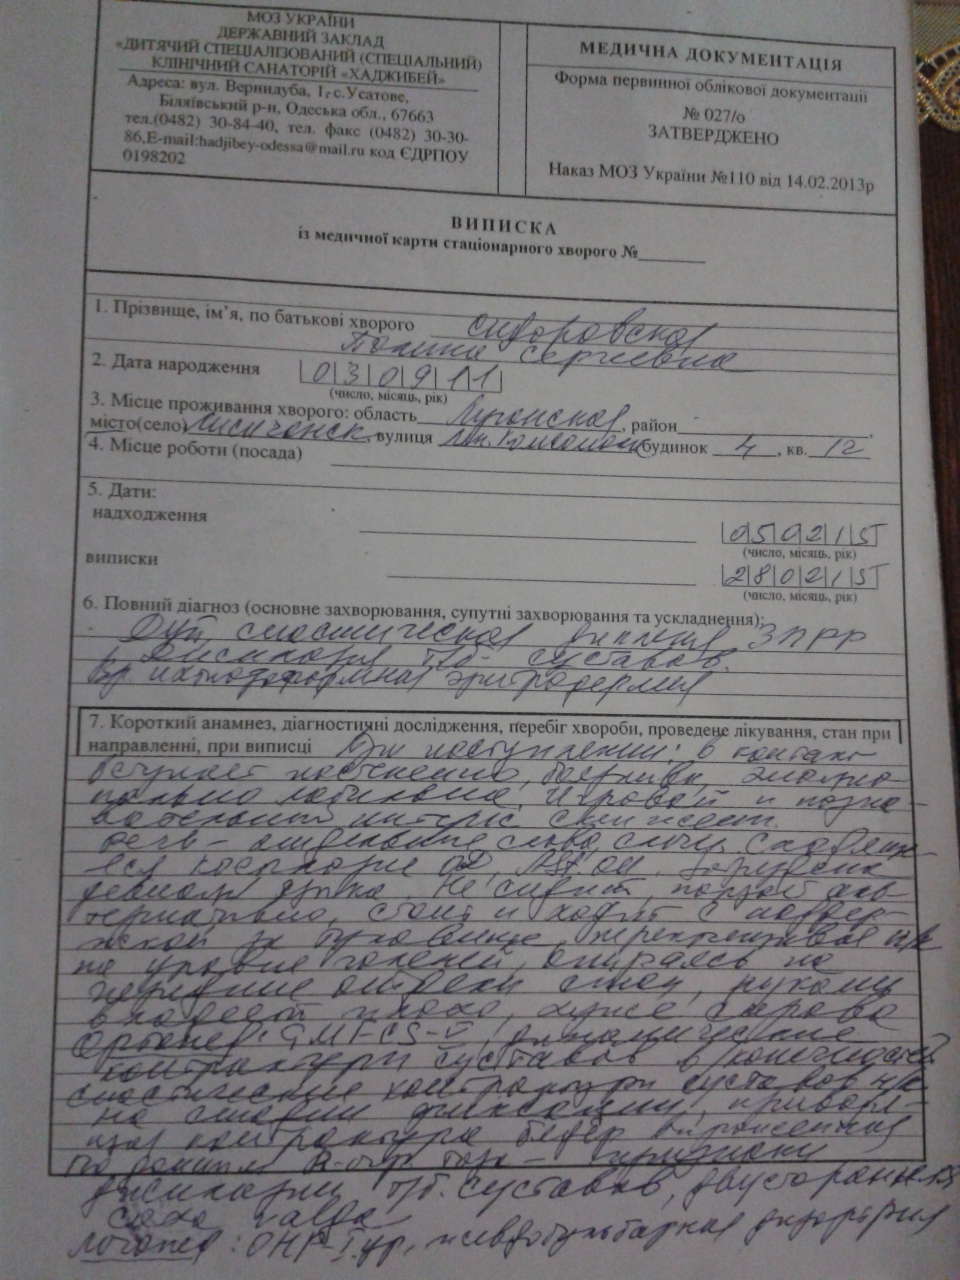 МОЗ УКРАЇНИ
ДЕРЖАВНИЙ ЗАКЛАД
«ДИТЯЧИЙ СПЕЦІАЛІЗОВАНИЙ (СПЕЦІАЛЬНИЙ)
КЛІНІЧНИЙ САНАТОРІЙ «ХАДЖИБЕЙ»
Адреса: вул. Вернидуба, 1, с.Усатове,
Біляївський р-н, Одеська обл., 67663
тел.(0482) 30-84-40, тел. факс (0482) 30-30-
86,E-mail:hadjibey-odessa@mail.ru код ЄДРПОУ
0198202
МЕДИЧНА ДОКУМЕНТАЦІЯ
Форма первинної облікової документації
№ 027/о
ЗАТВЕРДЖЕНО
Наказ МОЗ України №110 від 14.02.2013р
ВИПИСКА
із медичної карти стаціонарного хворого №
1. Прізвище, ім’я, по батькові хворого Сидоровская
Полина Сергеевна
2. Дата народження 030911
(число, місяць, рік)
3. Місце проживання хворого: область Луганская, район
місто(село) Лисичанск, вулиця будинок 4, кв. 12
4. Місце роботи (посада)
5. Дати:
надходження 050215
(число, місяць, рік)
виписки 280215
(число, місяць, рік)
6. Повний діагноз (основне захворювання, супутні захворювання та ускладнення):
спастическая диплегия, ЗПРР
т/б суставов.
Вр. ихтиозоформная эритродермия
7. Короткий анамнез, діагностичні дослідження, перебіг хвороби, проведене лікування, стан при
направленні, при виписці При поступлении: в контакт
вступает постепенно, эмоцио-
нально лабильна. Игровой и позна-
вательный интерес снижен.
речь - отдельные слова,
косоглазие
девиация языка. Не сидит, ползает аль-
тернативно, стоит и ходит с поддер-
жкой за туловище,
на уровне голеней, опираясь на
передние отделы стоп, руками
владеет плохо, хуже справа
Ортопед: GMFCS- динамические
контрактуры суставов в/конечностей
спастические контрактуры суставов н/к
на стадии фиксации, приводя-
щая контрактура бедер
По данным R-гр. таза - признаки
т/б. суставов, двусторонняя
coxa valga
Логопед: ОНР-I ур, псевдобульбарная дизартрия